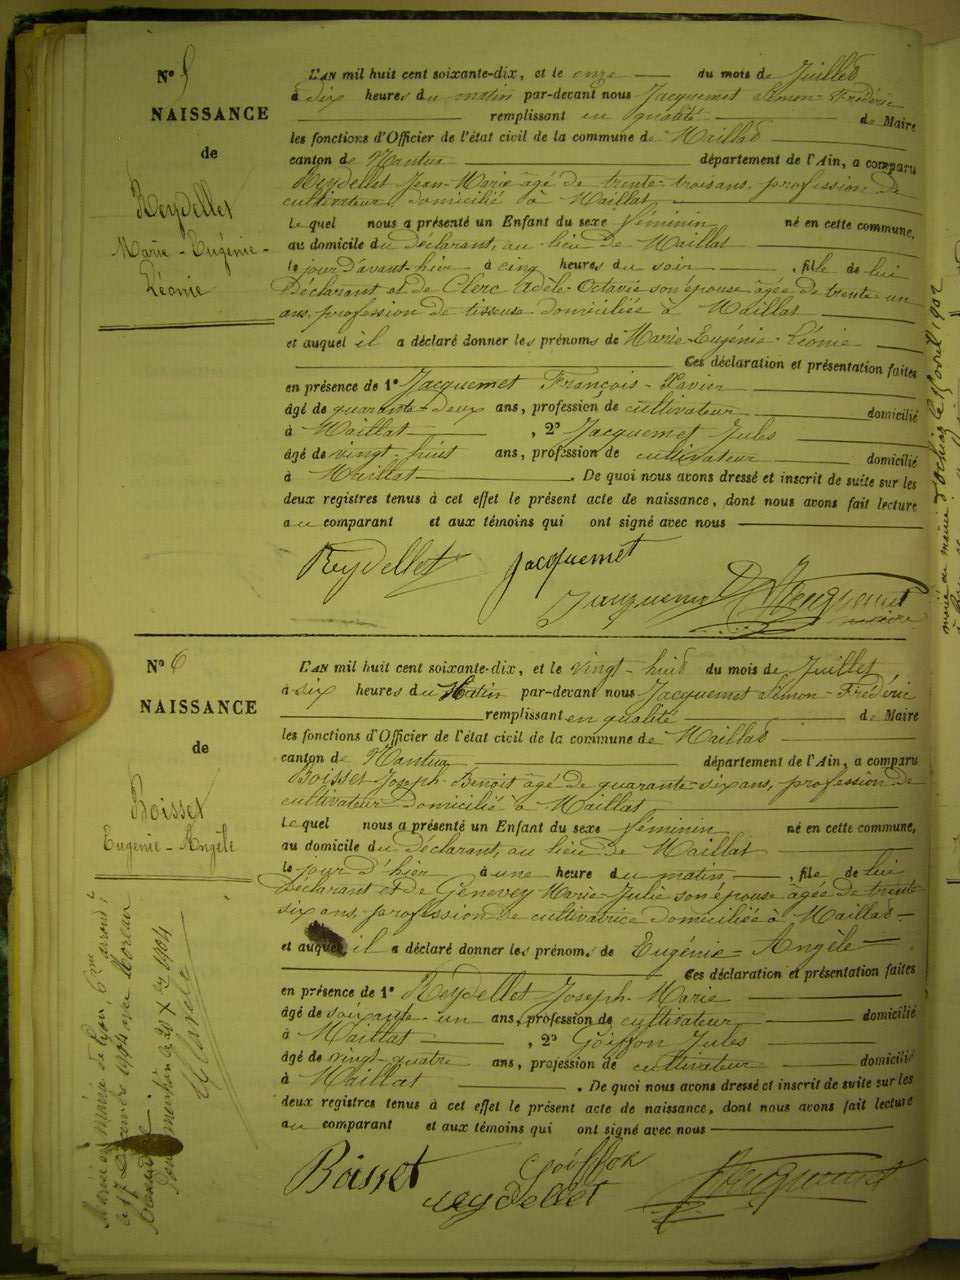 N° 5
NAISSANCE
de
Reydellet
Marie-Eugénie-
Léonie
L'AN mil huit cent soixante-dix, et le onze du mois de Juillet
à six heures du matin par-devant nous Jacquemet Simon-Frédéric
remplissant en qualité de Maire
les fonctions d'Officier de l'état civil de la commune de Maillat
canton de Nantua département de l'Ain, a comparu
Reydellet Jean-Marie âgé de trente-trois ans, profession de
cultivateur domicilié à Maillat
Le quel nous a présenté un Enfant du sexe féminin né en cette commune,
au domicile du Déclarant, au lieu de Maillat
le jour d'avant-hier à cinq heures du soir, fille de lui
Déclarant et de Clerc Adèle-Octavie son épouse âgée de trente-un
ans, profession de tisseuse domiciliée à Maillat
et auquel il a déclaré donner les prénoms de Marie-Eugénie-Léonie
Ces déclaration et présentation faites
en présence de 1° Jacquemet François-Xavier
âgé de quarante-deux ans, profession de cultivateur domicilié
à Maillat, 2° Jacquemet Jules
âgé de vingt-huit ans, profession de cultivateur domicilié
à Maillat. De quoi nous avons dressé et inscrit de suite sur les
deux registres tenus à cet effet le présent acte de naissance, dont nous avons fait lecture
au comparant et aux témoins qui ont signé avec nous
Reydellet Jacquemet
Jacquemet Jacquemet
maire
N° 6
NAISSANCE
de
Boisset
Eugénie-Angèle
L'AN mil huit cent soixante-dix, et le vingt-huit du mois de Juillet
à six heures du Matin par-devant nous Jacquemet Simon-Frédéric
remplissant en qualité de Maire
les fonctions d'Officier de l'état civil de la commune de Maillat
canton de Nantua département de l'Ain, a comparu
Boisset Joseph-Benoit âgé de quarante-six ans, profession de
cultivateur domicilié à Maillat
Le quel nous a présenté un Enfant du sexe féminin né en cette commune,
au domicile du Déclarant, au lieu de Maillat
le jour d'hier à une heure du matin, fille de lui
Déclarant et de Genevey Marie-Julie son épouse âgée de trente
six ans, profession de cultivatrice domiciliée à Maillat
et auquel il a déclaré donner les prénoms de Eugénie-Angèle
Ces déclaration et présentation faites
en présence de 1° Reydellet Joseph-Marie
âgé de soixante-un ans, profession de cultivateur domicilié
à Maillat, 2° Goiffon Jules
âgé de vingt-quatre ans, profession de cultivateur domicilié
à Maillat. De quoi nous avons dressé et inscrit de suite sur les
deux registres tenus à cet effet le présent acte de naissance, dont nous avons fait lecture
au comparant et aux témoins qui ont signé avec nous
Boisset Goiffon
Reydellet Jacquemet
Mariée à mairie de Lyon, 6me arrond.t
le 17 1904 Moreau
mention le 24 Xbre 1904
marié en mairie d'Ochiaz le avril 1902